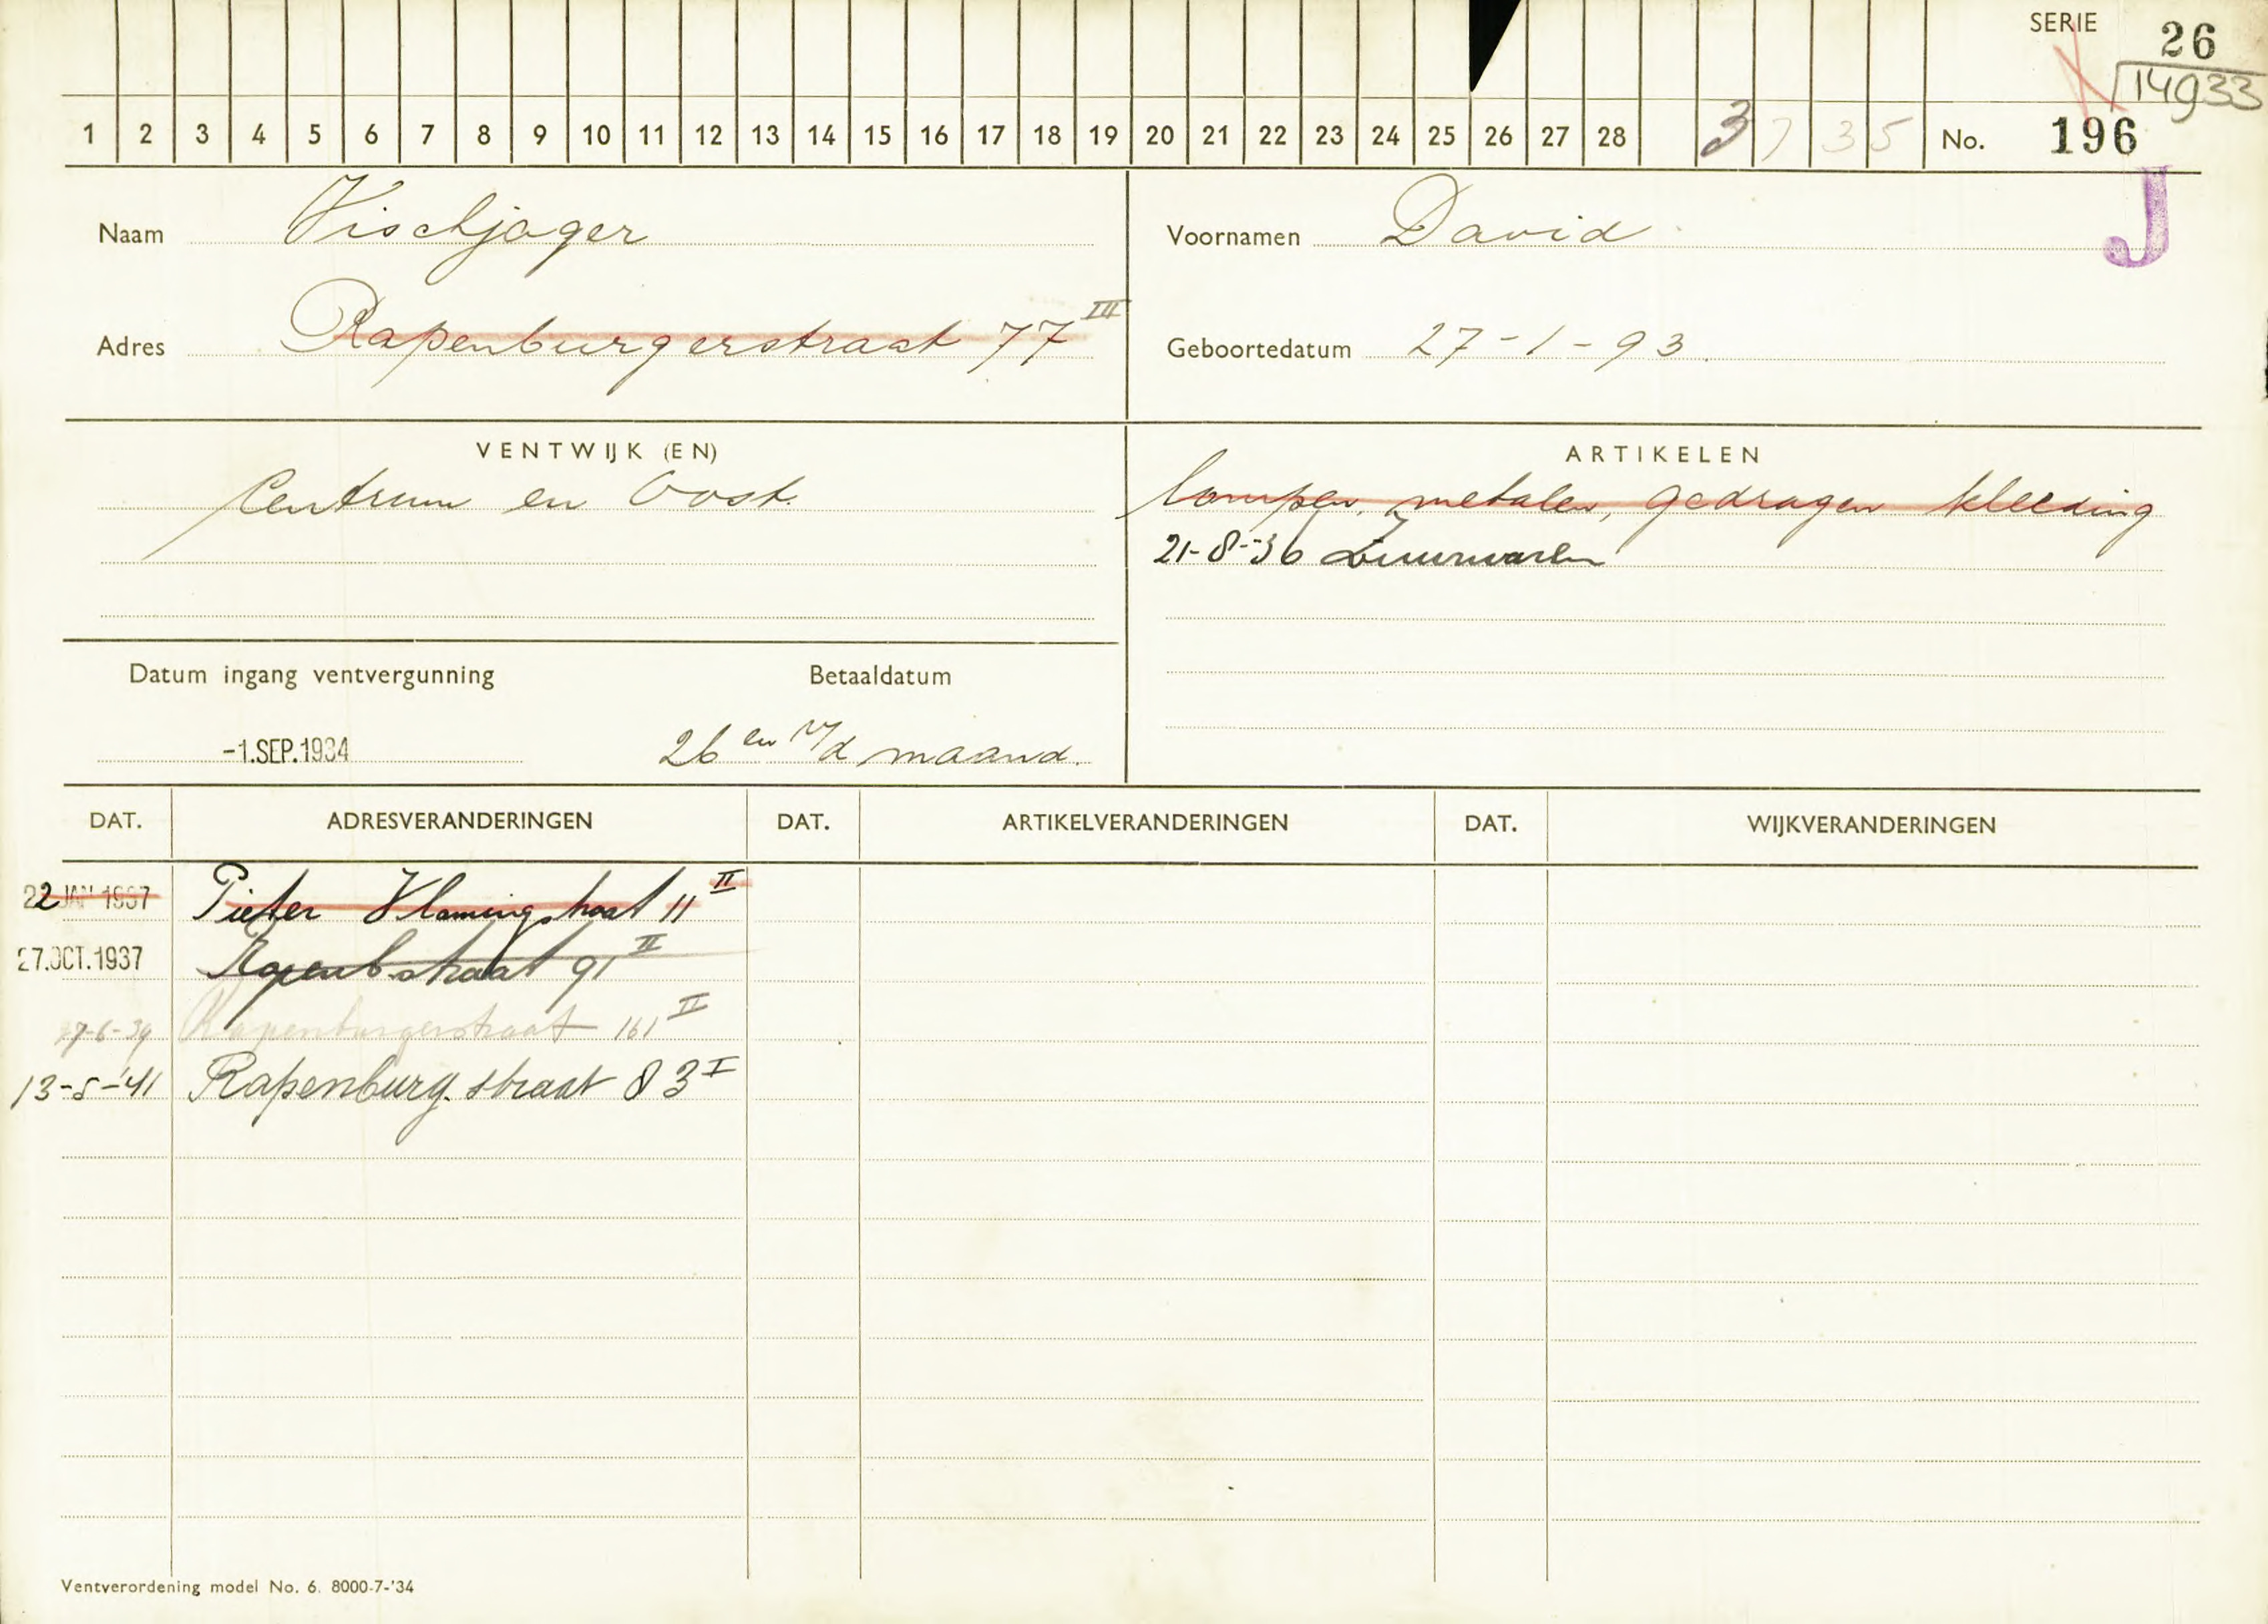 SERIE 26
14933
1 2 3 4 5 6 7 8 9 10 11 12 13 14 15 16 17 18 19 20 21 22 23 24 25 26 27 28 3 7 35 No. 196
J
Naam Vischjager
Voornamen David
Adres Rapenburgerstraat 77 III
Geboortedatum 27-1-93.
VENTWIJK (EN)
Centrum en Oost.
ARTIKELEN
lompen, metalen, gedragen kleeding
21-8-36 Zuurwaren
Datum ingang ventvergunning Betaaldatum
-1.SEP.1934 26 en v/d maand.
DAT. ADRESVERANDERINGEN DAT. ARTIKELVERANDERINGEN DAT. WIJKVERANDERINGEN
22 JAN 1937 Pieter Vlamingstraat 11 II
27.OCT.1937 Rapenb.straat 91 II
27-6-39 Rapenburgerstraat 161 II
13-5-'41 Rapenburg. straat 83 I
Ventverordening model No. 6. 8000-7-'34